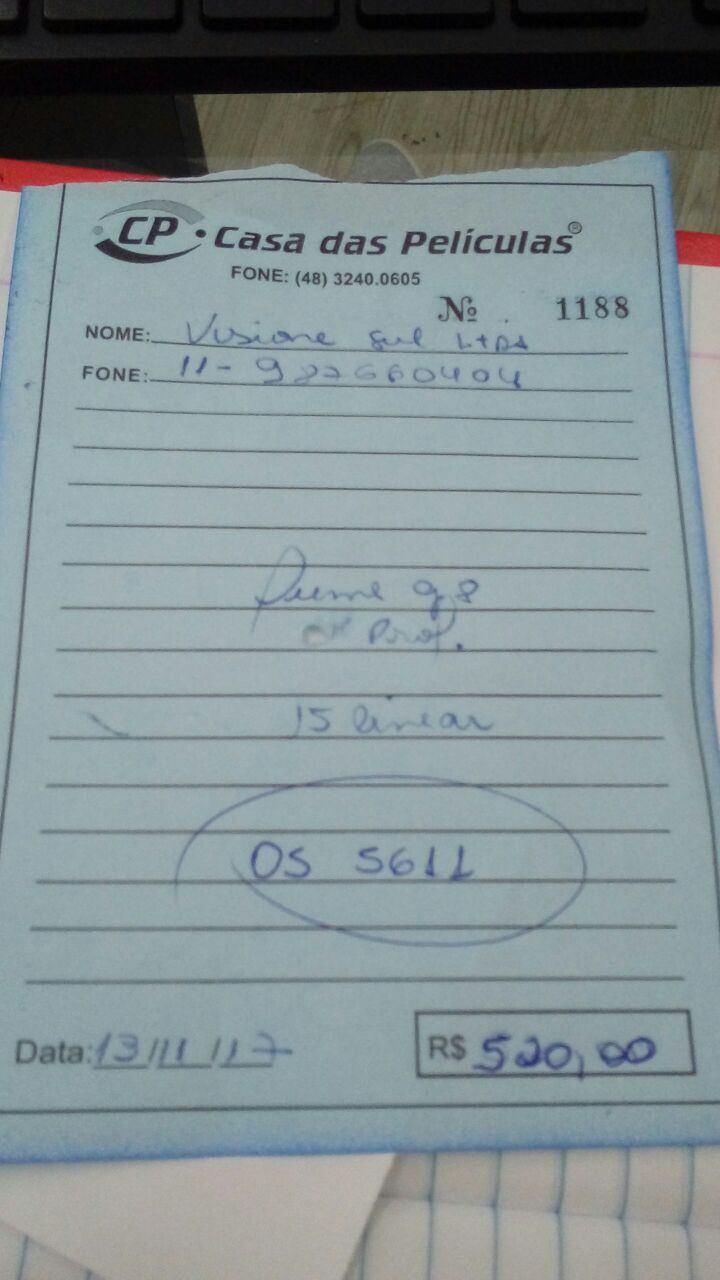 CP • Casa das Películas®
FONE: (48) 3240.0605
Nº. 1188
NOME: Visione Sul LTDA
FONE: 11-
98
Prof.
15 linear
OS 5611
Data: 13/11/17
R$ 520,00